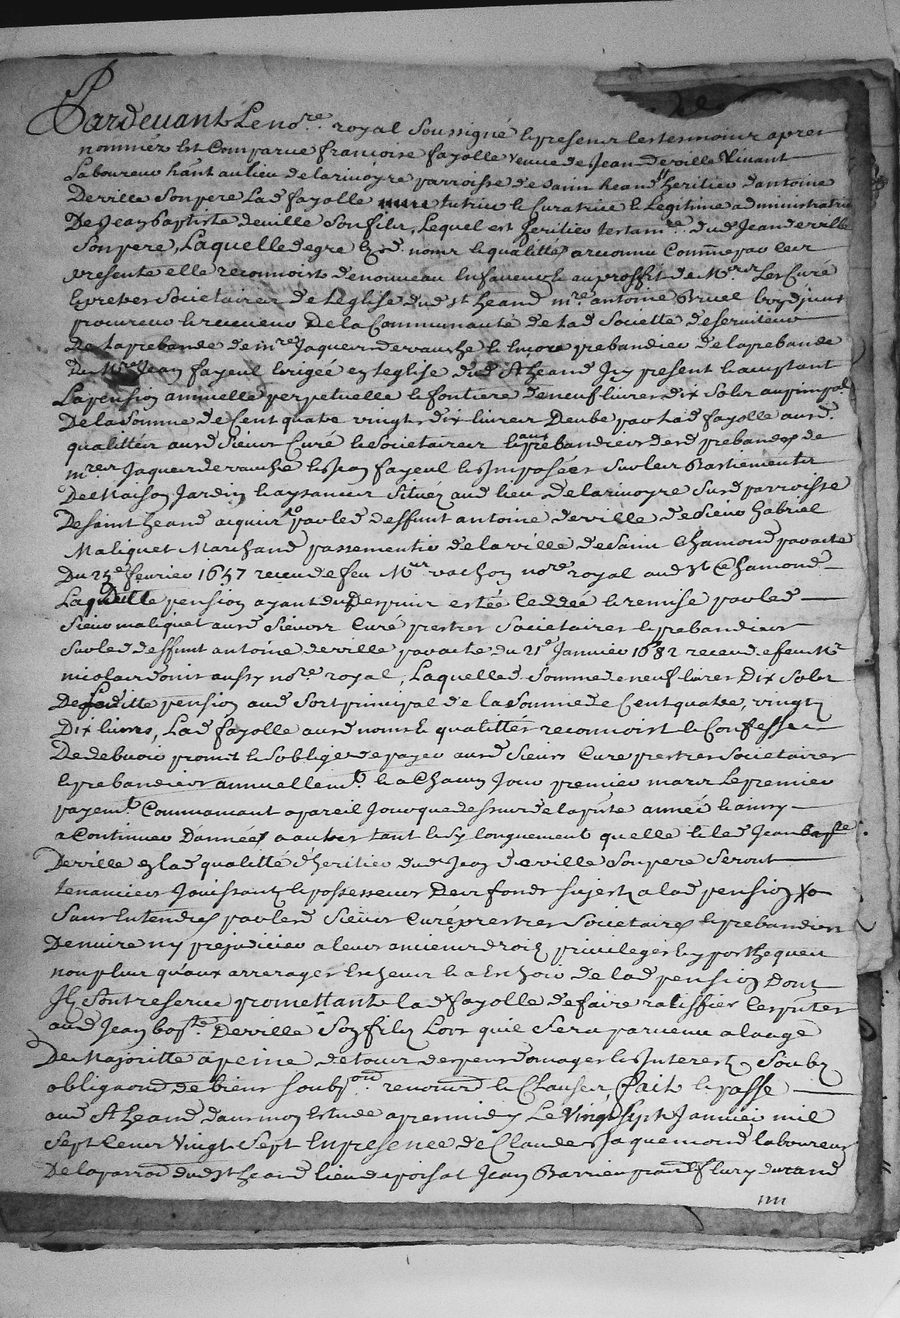 Pardevant Le nore. royal Soussigné et presens les tesmoins apres
nommez Est Comparue françoise fayolle veuve de Jean Deville Vivant
Laboureur hant au lieu de larivoyre parroisse de saint heand heritier d'antoine
Deville Son pere Lad. fayolle tutrice et Curatrice et Legitime administratrice
De Jean baptiste deville Son fils, Lequel est heritier testamre. dud. Jean deville
Son pere, Laquelle de gre Esd. noms et qualittés a reconnu Comme par ces
presente elle reconnoist de nouveau En faveur et au proffit de Mrs. Les Curé
Et pretres Societaires de Leglise dud. st. heand mre. antoine Bruel
procureur et receveur De la Communauté de lad. Societte deserviteur
De La prebande de mre. Jaques devauche et Encore prebandier de la prebande
De Mre. Jean fayeul Erigée En leglise dud. St. heand Icy present Et acceptant
La pension annuelle perpetuelle et fontiere de neuf livres dix Sols au pinpal.
De la Somme de Cent quatre vingts dix livres Deube par lad. fayolle ausd.
qualittés ausd. Sieurs Curé et Societaires et aux prebandiers desd. prebandes de
mres. Jaques devauche et Jean fayeul et Imposées Sur les Bastiements
De Maison Jardin et aysances Situés aud. lieu de larivoyre Susd. parroisse
De Saint heand acquis par led. deffunt antoine deville de Sieur gabriel
Maliquet Marchand passementier de la ville de Saint Chamond par acte
Du 25e. fevrier 1657 receu de feu Mre. vachon nore. royal aud. St. Chamond
Laquelle pension ayant du Despuis estée Ceddée et remise par led.
Sieur maliquet ausd. Sieurs Curé prestres Societaires et prebandiers
Sur led. deffunt antoine deville par acte du 21e. Janvier 1682 receu de feu Me.
nicolas aussy nore. royal, Laquelle Somme de neuf livres Dix Sols
De Laditte pension aud. Sort principal de la Somme de Cent quatre, vingts
Dix livres, Lad. fayolle ausd. noms et qualittés reconnoist et Confesse
De debvoir promet et Soblige de payer ausd. Sieurs Cure prestres Societaires
et prebandiers annuellemt. et a Chacun Jour premier mars Le premier
payemt. Commancant a pareil Jour que dessus de la pnte. année Et ainsy
a Continuer D'année a autres tant et Sy longuement quelle et led. Jean bapte.
Deville En lad. qualitté d'heritier dud. Jean deville Son pere Seront
tenanciers Jouissants et possesseurs Des fonds Sujets a lad. pension
Sans Entendre par lesd. Sieurs Curé prestres Societaires et prebandiers
De nuire ny prejudicier a leurs anciens droits privileges et ypotheques
non plus qu'aux arrerages de lad. pension Dont
Ils Sont reservé promettant lad. fayolle de faire ratiffier Ces pntes.
aud. Jean bapte. Deville Son fils Lors quil Sera parvenu a laage
De Majoritte a peine de tous despens domages et Interest, Soubz
obligaon. de biens renonceon. et Clauses fait et passe
aud. St. heand dans mon Estude apremidy Le Vingt Sept Janvier mil
Sept Cens Vingt Sept En presence de Claude Jaquemond laboureur
De la parroisse dud. St. heand lieu de poisat Jean Barrieu fleury durand